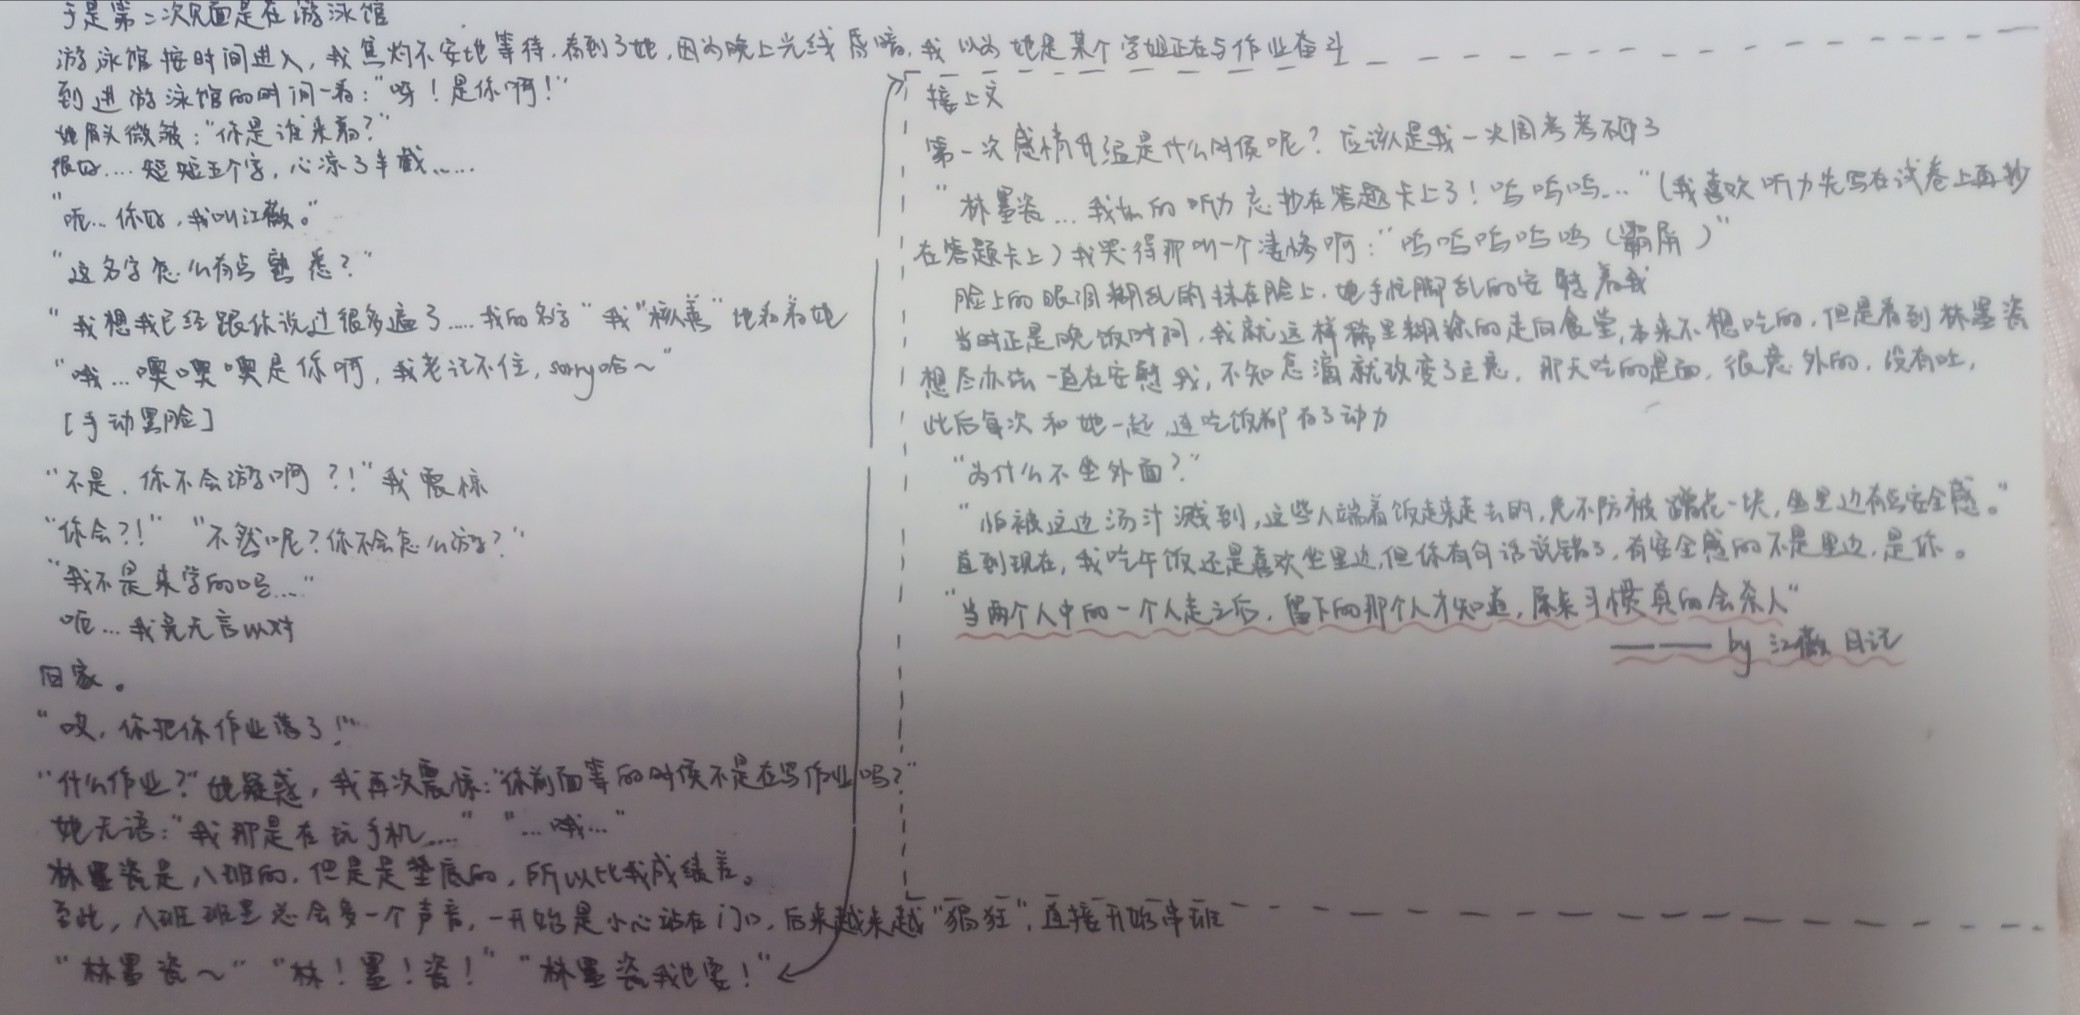 于是第二次见面是在游泳馆
游泳馆按时间进入，我焦灼不安地等待，看到了她，因为晚上光线昏暗，我以为她是某个学姐正在与作业奋斗
到进游泳馆的时间一看："呀！是你啊！"
她眉头微皱："你是谁来着？"
很好....短短五个字，心凉了半截......
"呃...你好，我叫江薇。"
"这名字怎么有点熟悉？"
"我想我已经跟你说过很多遍了.....我的名字"我"核善"地看着她
"哦...噢噢噢是你啊，我老记不住，sorry哈～"
[手动黑脸]
"不是，你不会游啊？!"我震惊
"你会?!" "不然呢？你不会怎么游？"
"我不是来学的吗...."
呃...我竟无言以对
回家。
"哎，你把你作业落了！"
"什么作业？"她疑惑，我再次震惊："你前面等的时候不是在写作业吗？"
她无语："我那是在玩手机...." "...哦..."
林墨瓷是八班的，但是是垫底的，所以比我成绩差。
至此，八班班里总会多一个声音，一开始是小心站在门口，后来越来越"猖狂"，直接开始串班
"林墨瓷～" "林！墨！瓷！" "林墨瓷我也要！"
接上文
第一次感情升温是什么时候呢？应该是我一次周考考不好了
"林墨瓷...我如的听力忘抄在答题卡上了！呜呜呜..."（我喜欢听力先写在试卷上再抄
在答题卡上）我哭得那叫一个凄惨啊："呜呜呜呜呜（霸屏）"
脸上的眼泪糊乱的抹在脸上，她手忙脚乱的安慰着我
当时正是晚饭时间，我就这样稀里糊涂的走向食堂，本来不想吃的，但是看到林墨瓷
想尽办法一直在安慰我，不知怎滴就改变了主意，那天吃的是面，很意外的，没有吐，
此后每次和她一起，连吃饭都有了动力
"为什么不坐外面？"
"怕被这边汤汁溅到，这些人端着饭走来走去的，免不防被蹭花一块，坐里边有点安全感。"
直到现在，我吃午饭还是喜欢坐里边，但你有句话说错了，有安全感的不是里边，是你。
"当两个人中的一个人走之后，留下的那个人才知道，原来习惯真的会杀人"
—— by 江薇日记